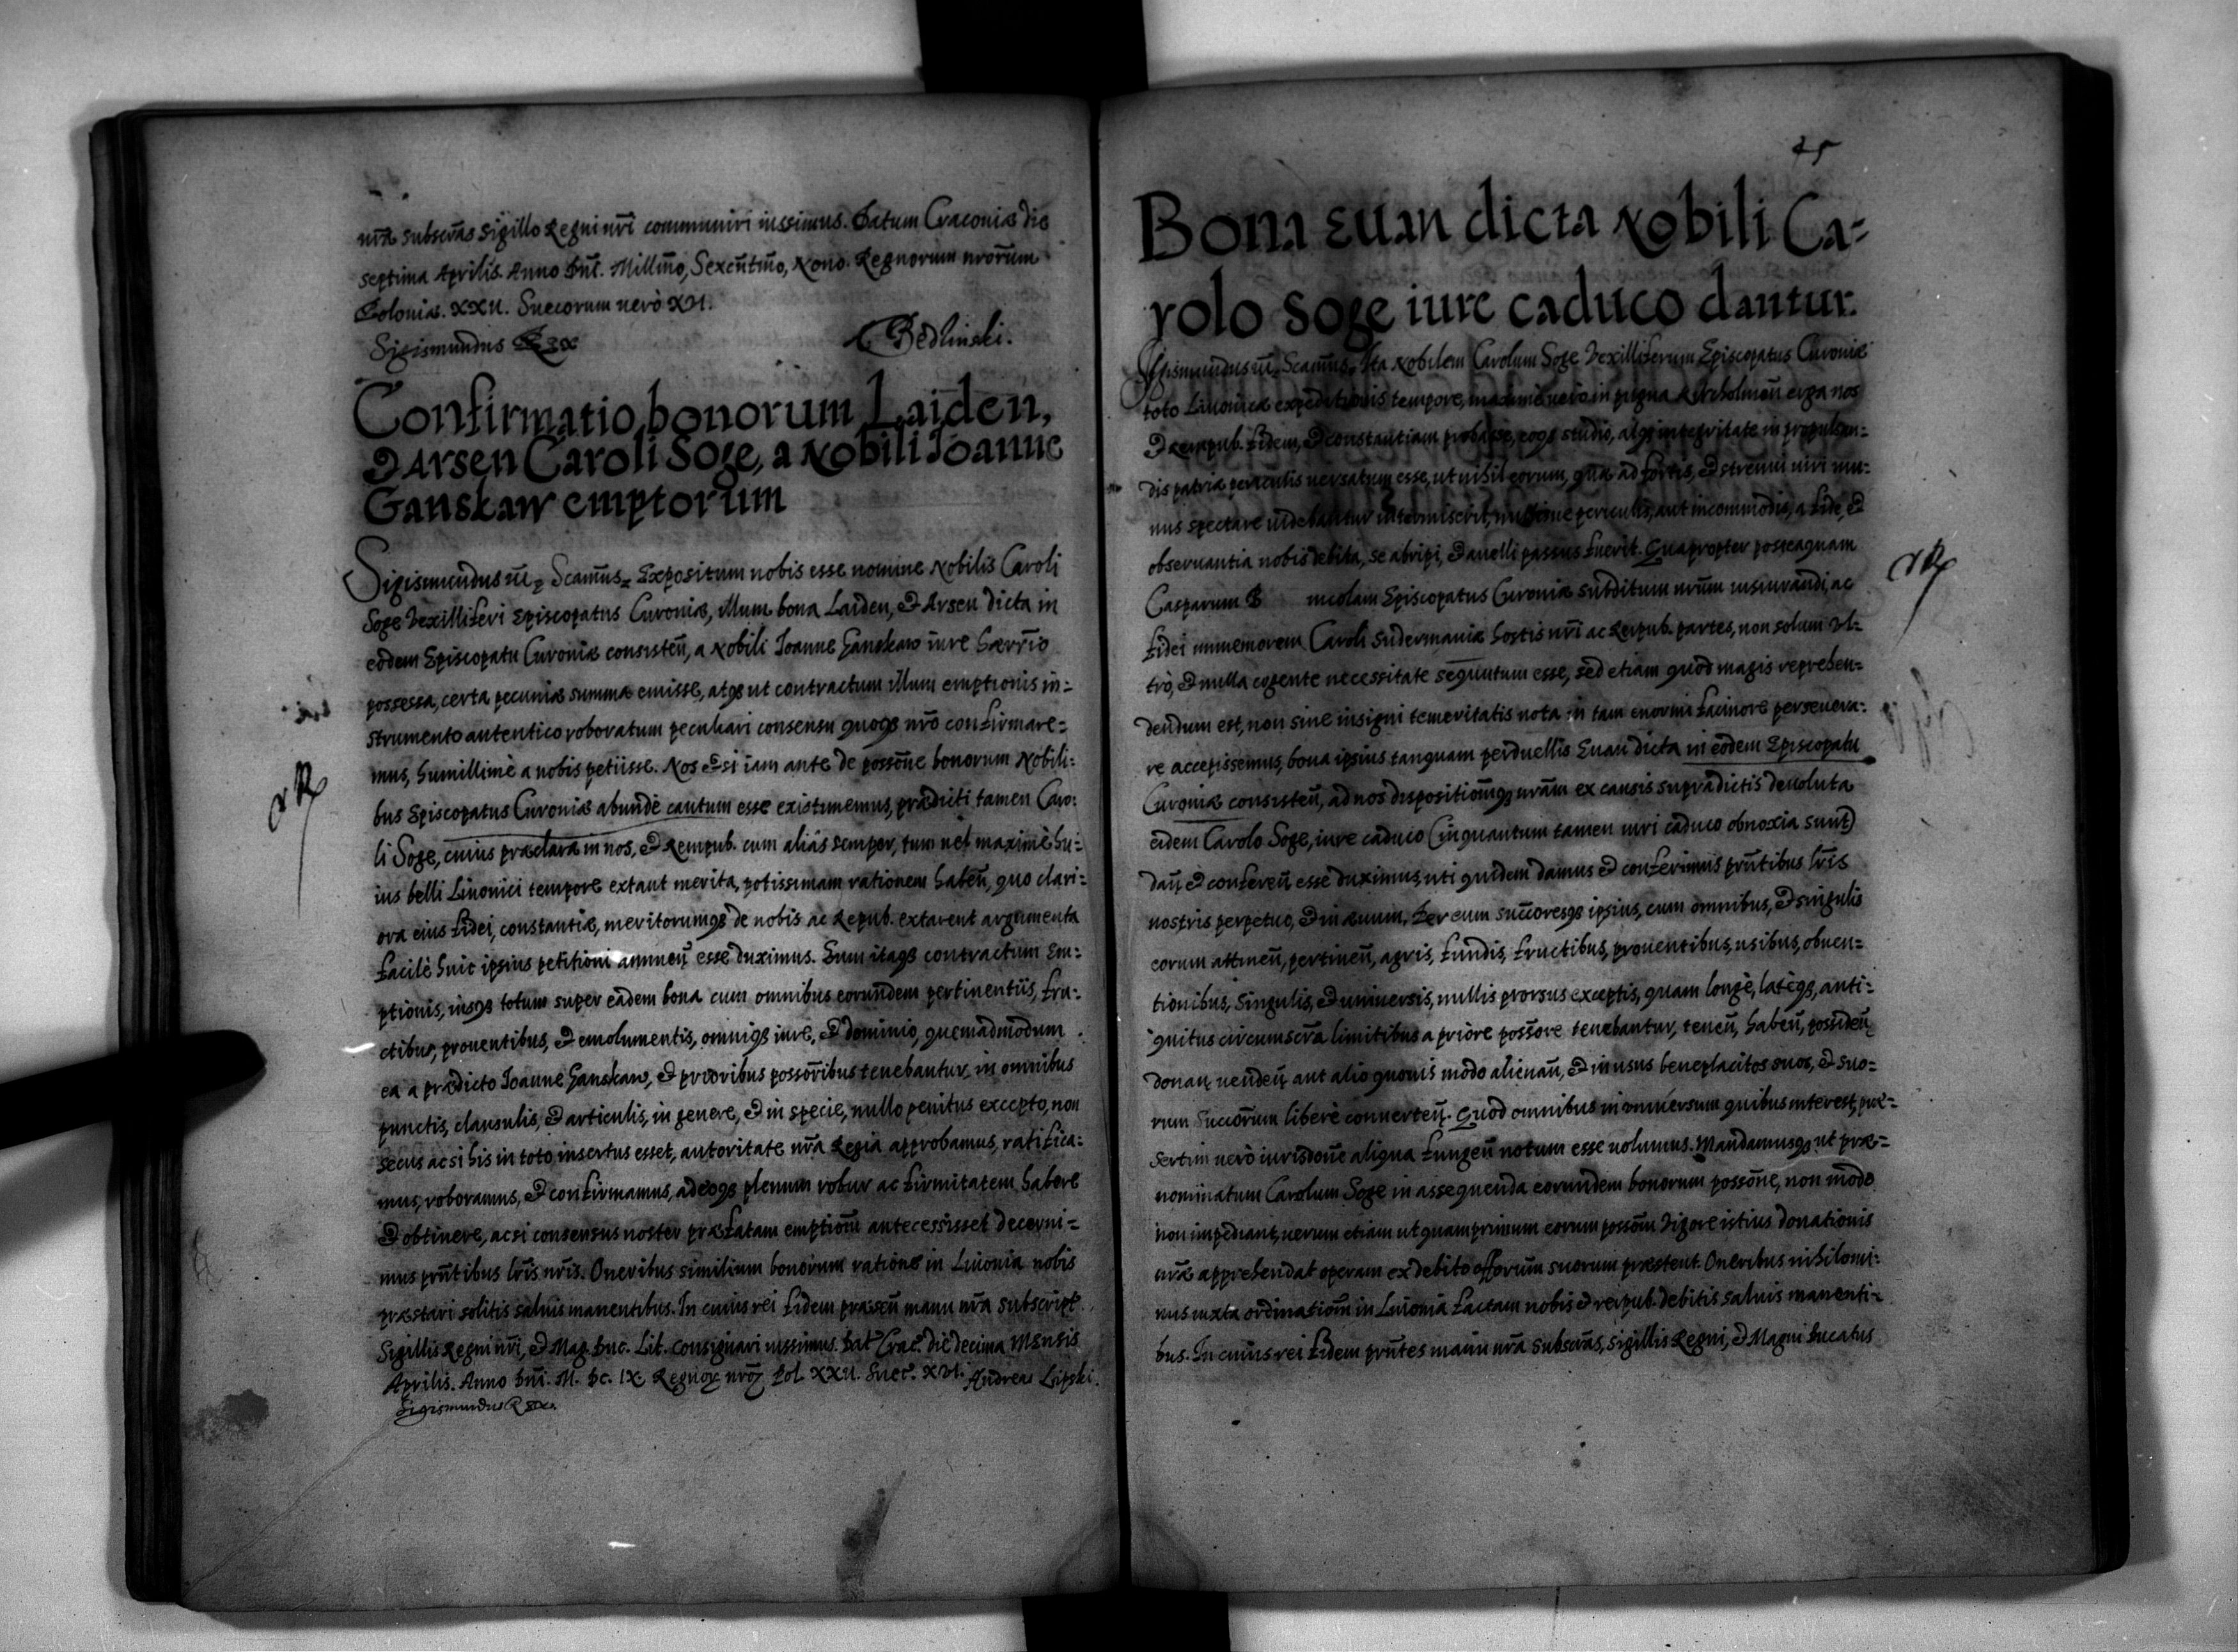 nrã subscrãs Sigillo Regni nri communiri iussimus. Datum Cracoviæ die
septima Aprilis. Anno Dni. Millmo, Sexcentmo, Nono. Regnorum nrorum
Poloniæ. XXII. Suecorum uerò XVI.
Sigismundus Rex
Bedlinski.
Confirmatio bonorum Laiden,
& Arsen Caroli Soge, a Nobili Ioanne
Ganskaw emptorum
Sigismundus III. Scamus. Expositum nobis esse nomine Nobilis Caroli
Soge Vexilliferi Episcopatus Curoniæ, illum bona Laiden, & Arsen dicta in
eodem Episcopatu Curoniæ consisten, a Nobili Ioanne Ganskaw iure hærrio
possessa, certa pecuniæ summa emisse, atqs ut contractum illum emptionis in=
strumento autentico roboratum peculiari consensu quoqs nrõ confirmare=
mus, humillimè a nobis petiisse. Nos & si iam ante de possone bonorum Nobili=
bus Episcopatus Curoniæ abundè cautum esse existimemus, prædicti tamen Caro=
li Soge, cuius præclara in nos, & Rempub. cum aliàs semper, tum uel maximè hu=
ius belli Liuonici tempore extant merita, potissimam rationem haben, quo clari=
ora eius fidei, constantiæ, meritorumqs de nobis ac Repub. extarent argumenta
facilè huic ipsius petitioni annuen esse duximus. Eum itaqs contractum Em=
ptionis, iusqs totum super eadem bona cum omnibus eorundem pertinentiis, fru=
ctibus, prouentibus, & emolumentis, omniqs iure, & dominio, quemadmodum
ea a prædicto Ioanne Ganskaw, & prioribus possoribus tenebantur, in omnibus
punctis, clausulis, & articulis, in genere, & in specie, nullo penitus excepto, non
secus ac si his in toto insertus esset, autoritate nrã Regia approbamus, ratifica=
mus, roboramus, & confirmamus, adeoqs plenum robur ac firmitatem habere
& obtinere, ac si consensus noster præfatam emptiom antecessisset decerni=
mus pntibus lris nris. Oneribus similium bonorum ratione in Liuonia nobis
præstari solitis saluis manentibus. In cuius rei fidem præsen manu nrã subscript.
Sigillis Regni nri, & Mag. Duc. Lit. consignari iussimus. Dat Crac. die decima Mensis
Aprilis. Anno Dni. M. Dc. IX. Regnor nror Pol. XXII. Suec. XVI. Andreas Lipski.
Sigismundus Rex.
45
Bona Euan dicta Nobili Ca=
rolo Soge iure caduco dantur.
Sigismundus III. Scamus. Ita Nobilem Carolum Soge Vexilliferum Episcopatus Curoniæ
toto Liuonicæ expeditionis tempore, maximè uerò in pugna Kircholmen erga nos
& Rempub. fidem, & constantiam probasse, eoqs studio, atqs integritate in propulsan=
dis patriæ periculis uersatum esse, ut nihil eorum, quæ ad fortis, & strenui uiri mu=
nus spectare uidebantur intermiserit, nullisque periculis, aut incommodis, a fide, &
obseruantia nobis debita, se abripi, & auelli passus fuerit. Quapropter posteaquam
Casparum B incolam Episcopatus Curoniæ subditum nrum iusiurandi, ac
fidei immemorem Caroli Sudermaniæ hostis nri ac Reipub. partes, non solum vl=
trò, & nulla cogente necessitate sequutum esse, sed etiam quod magis reprehen=
dendum est, non sine insigni temeritatis nota in tam enormi facinore perseuera=
re accepissemus, bona ipsius tanquam perduellis Euan dicta in eodem Episcopatu
Curoniæ consisten, ad nos dispositiomqs nram ex causis supradictis deuoluta
eidem Carolo Soge, iure caduco (inquantum tamen iuri caduco obnoxia sunt)
dan & conferen esse duximus, uti quidem damus & conferimus pntibus lris
nostris perpetuo, & in æuum. Per eum succoresqs ipsius, cum omnibus, & singulis
eorum attinen, pertinen, agris, fundis, fructibus, prouentibus, usibus, obuen=
tionibus, Singulis, & uniuersis, nullis prorsus exceptis, quam longè, latèqs, anti=
quitus circumscra limitibus a priore possore tenebantur, tenen, haben, possiden
donan, uenden aut alio quouis modo alienan, & in usus beneplacitos suos, & suo=
rum Succorum liberè conuerten. Quod omnibus in uniuersum quibus interest, præ=
sertim uerò iurisdone aliqua fungen notum esse uolumus. Mandamusqs ut præ=
nominatum Carolum Soge in assequenda eorundem bonorum possone, non modo
non impediant, uerum etiam ut quamprimum eorum possom Vigore istius donationis
nræ apprehendat operam ex debito offorum suorum præstent. Oneribus nihilomi=
nus iuxta ordinatiom in Liuonia factam nobis & reipub. debitis saluis manenti=
bus. In cuius rei fidem pntes manu nrã subscras, sigillis Regni, & Magni Ducatus